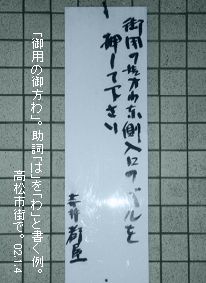 御用の御方わ東側入口のベルを
押して下さい
「御用の御方わ」。助詞「は」を「わ」と書く例。
高松市街で。02.1.14